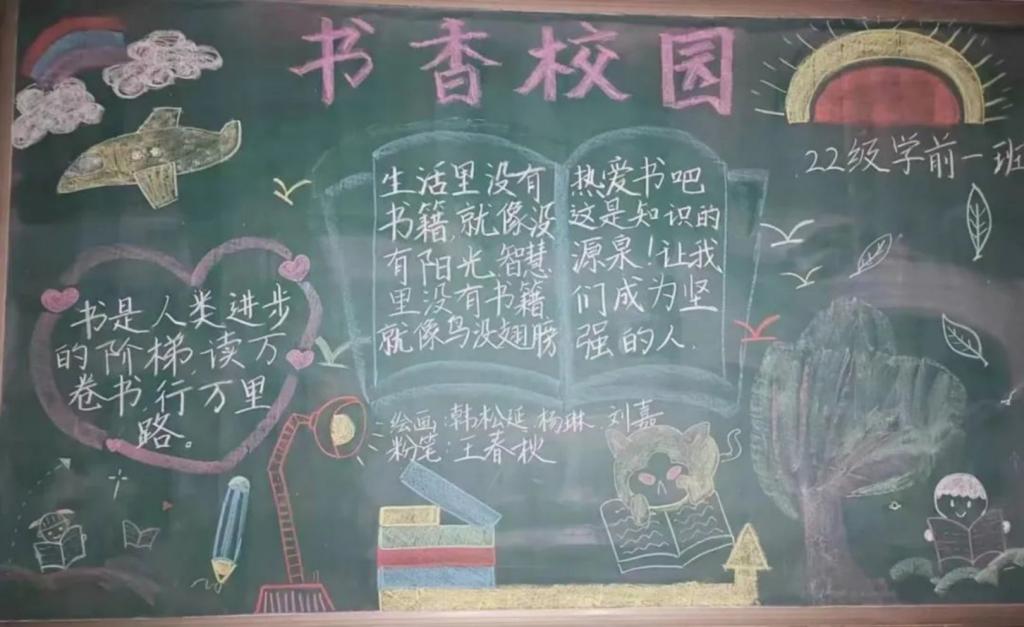 书香校园
22级学前一班
生活里没有
书籍,就像没
有阳光,智慧
里没有书籍
就像鸟没翅膀
热爱书吧
这是知识的
源泉!让我
们成为坚
强的人.
书是人类进步
的阶梯,读万
卷书,行万里
路。
绘画:韩松延 杨琳 刘嘉
粉笔:王春秋